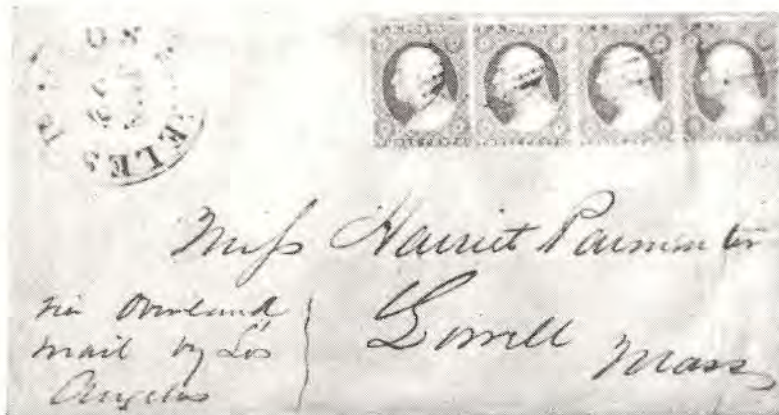 Miss Harriet Parmenter
Lowell
Mass
via Overland
mail by Los
Angelos